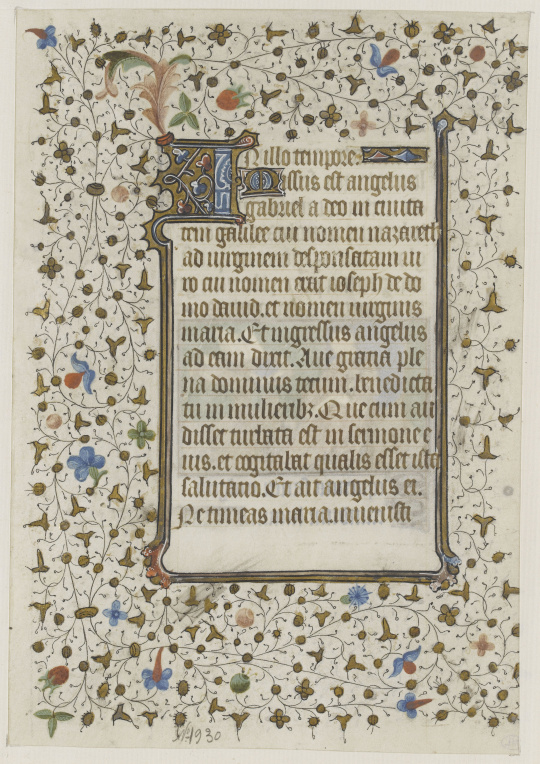 In illo tempore.
Missus est angelus
gabriel a deo in ciuita
tem galilee cui nomen nazareth
ad uirginem desponsatam ui
ro cui nomen erat ioseph de do
mo dauid. et nomen uirginis
maria. Et ingressus angelus
ad eam dixit. Aue gracia ple
na dominus tecum. benedicta
tu in mulieribz. Que cum au
disset turbata est in sermone e
ius. et cogitabat qualis esset ista
salutacio. Et ait angelus ei.
Ne timeas maria. inuenisti